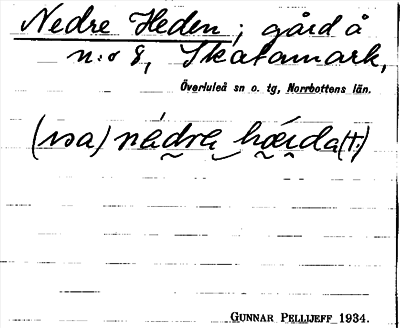 Nedre Heden; gård å
n:o 8, Skatamark,
Överluleå sn o. tg, Norrbottens län.
(ɪsa) nádra hœida(t:)
GUNNAR PELLIJEFF 1934.